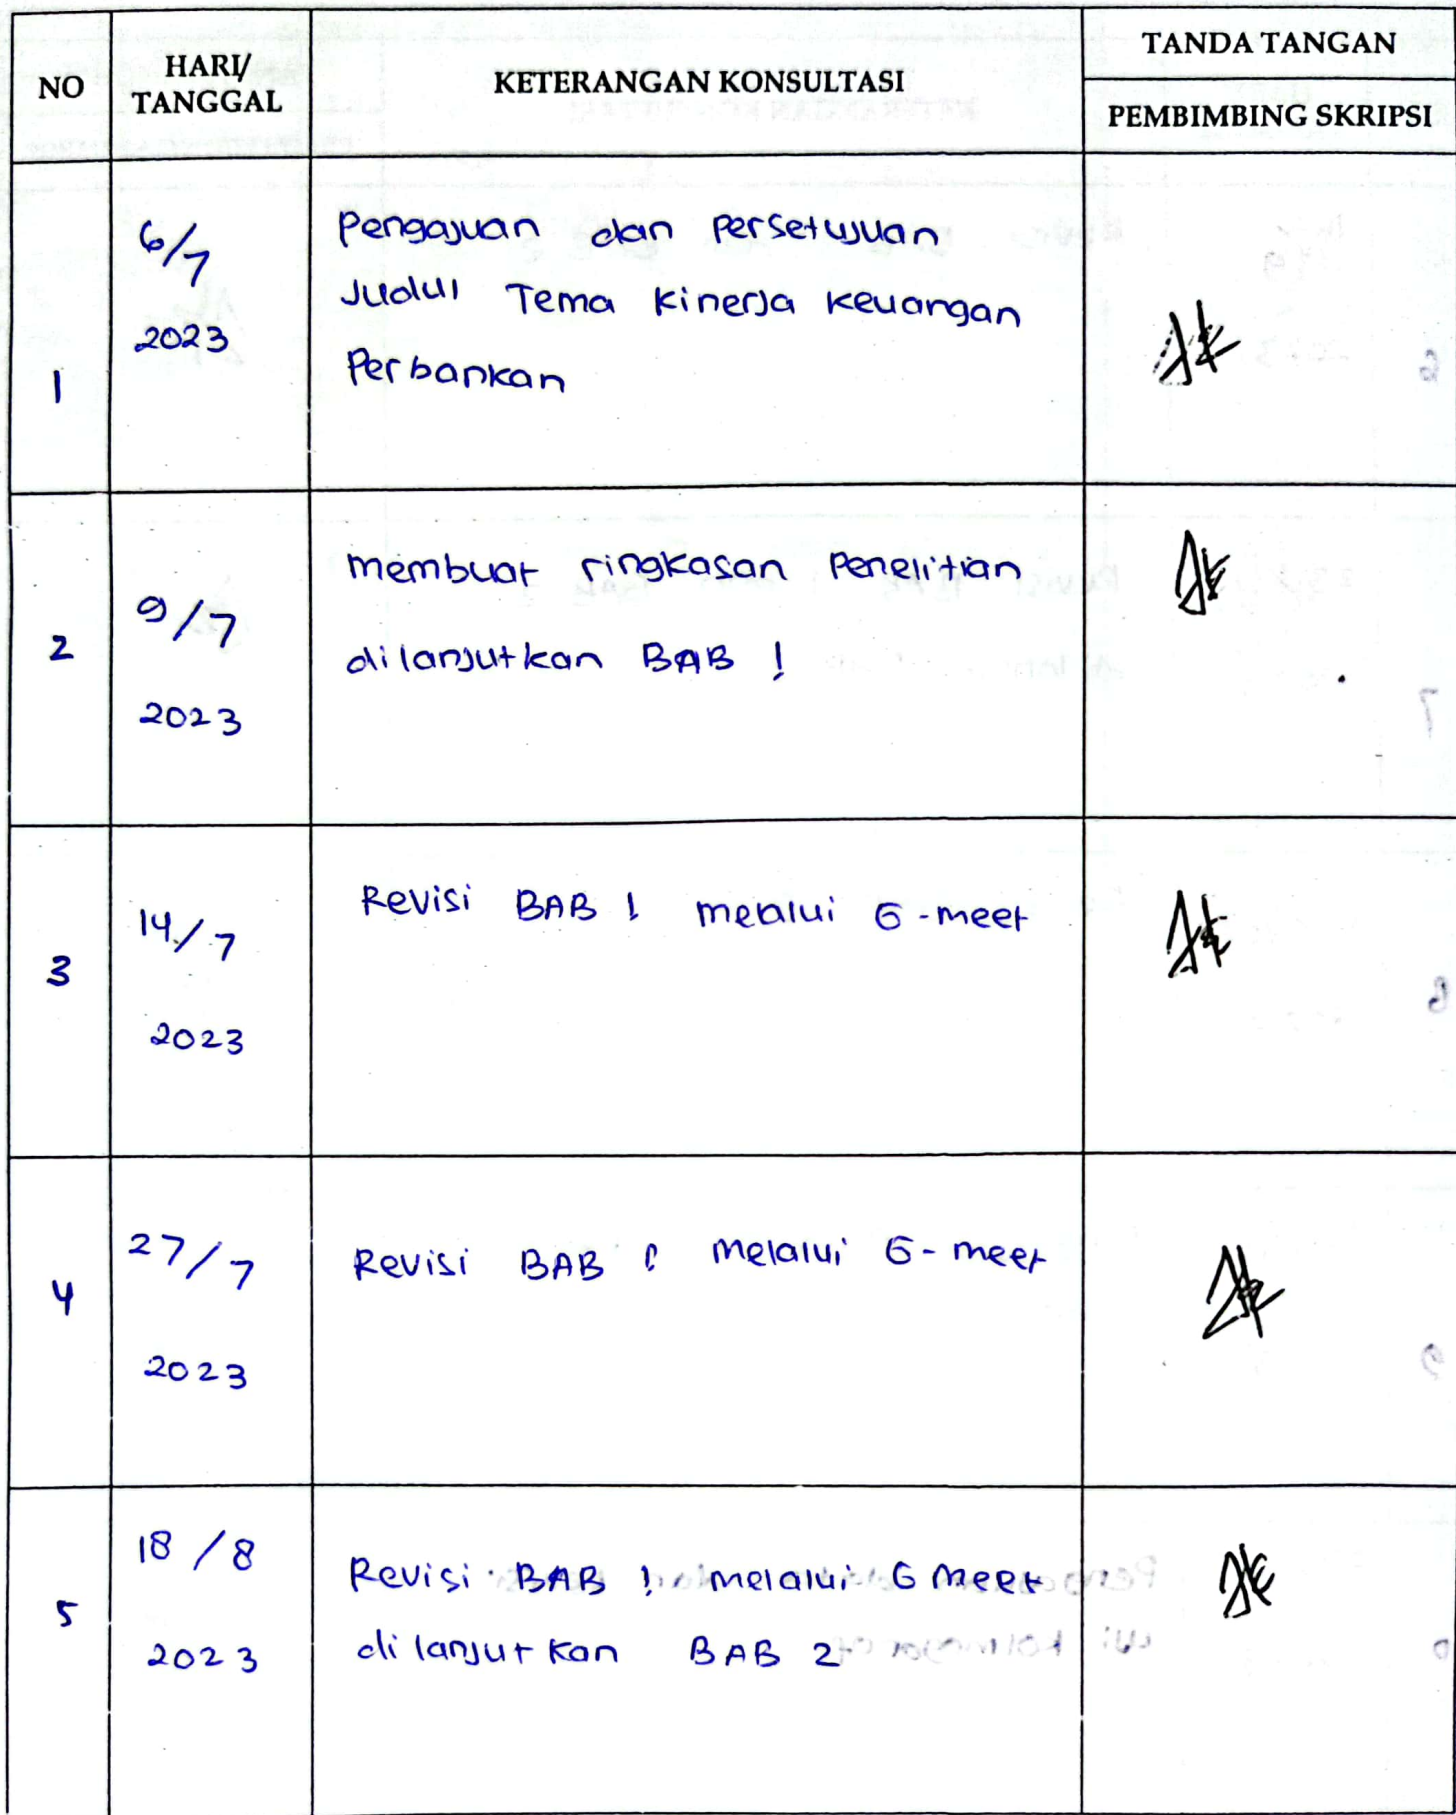 NO
HARI/
TANGGAL
KETERANGAN KONSULTASI
TANDA TANGAN
PEMBIMBING SKRIPSI
1
6/7
2023
Pengajuan dan Persetujuan
Judul Tema Kinerja Keuangan
Perbankan
2
9/7
2023
membuat ringkasan Penelitian
dilanjutkan BAB 1
3
14/7
2023
Revisi BAB 1 melalui G-meet
4
27/7
2023
Revisi BAB 1 melalui G-meet
5
18/8
2023
Revisi BAB 1 melalui G meet
dilanjutkan BAB 2